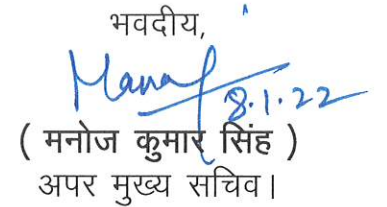 भवदीय,
8.1.22
( मनोज कुमार सिंह )
अपर मुख्य सचिव।